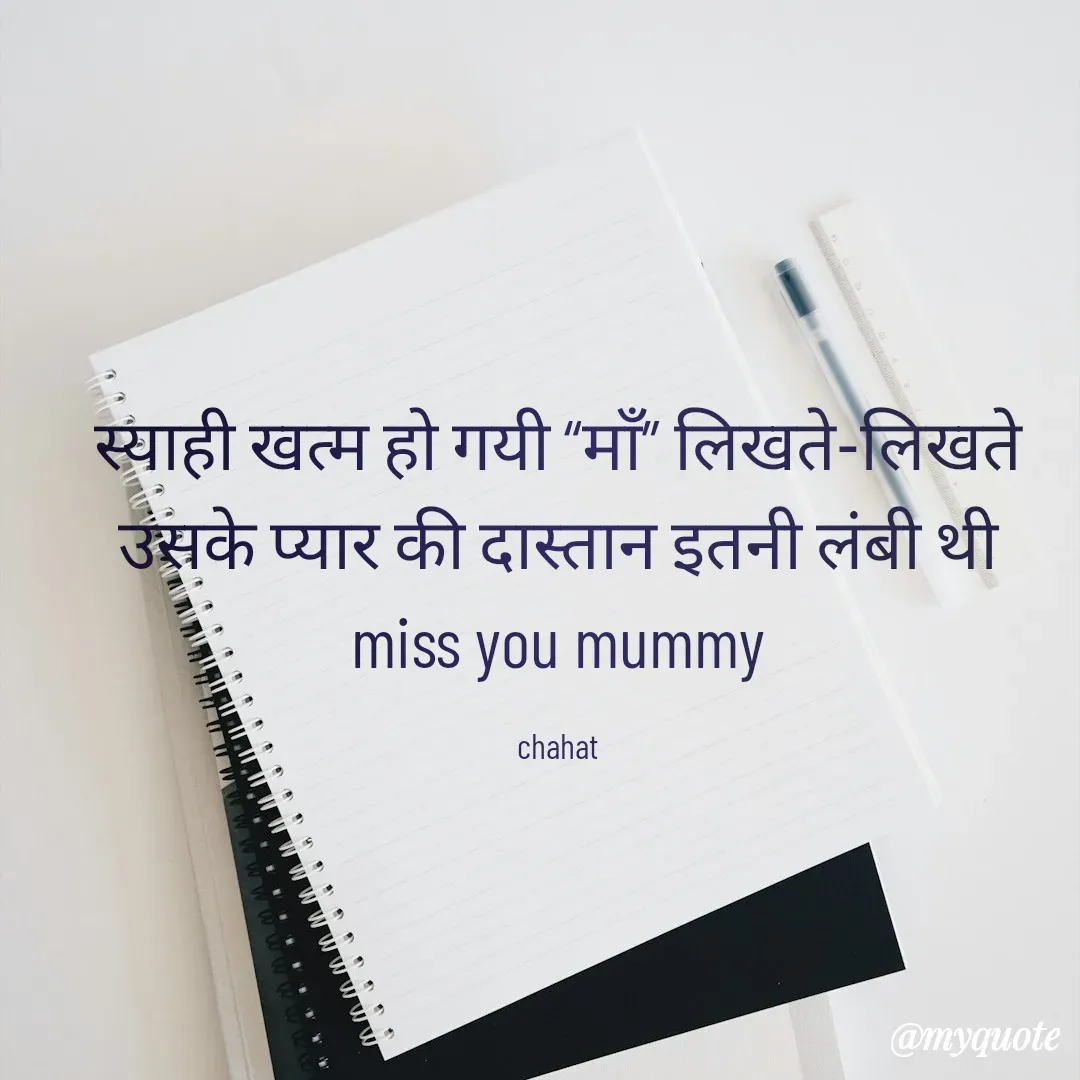 स्याही खत्म हो गयी “माँ” लिखते-लिखते
उसके प्यार की दास्तान इतनी लंबी थी
miss you mummy
chahat
@myquote